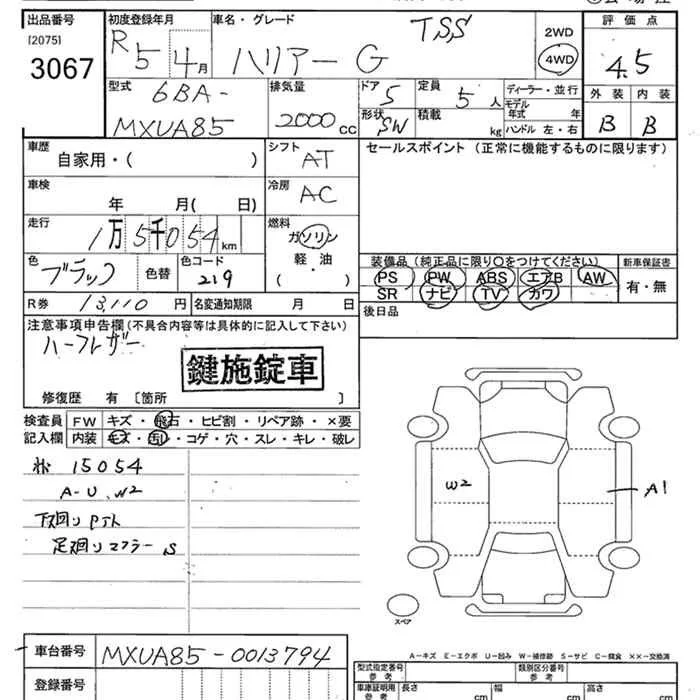 出品番号 初度登録年月 車名・グレード 評価点
[2075] R5 4月 ハリアー G TSS 2WD
3067 4WD 4.5
型式 排気量 ドア 定員 ディーラー・並行 外装 内装
6BA- 5 5人 モデル年式 年
MXUA85 2000cc 形状 SW 積載 kg ハンドル 左・右 B B
車歴 シフト セールスポイント (正常に機能するものに限ります)
自家用・( ) AT
車検 冷房
年 月( 日) AC
走行 燃料
1万5千054km ガソリン
軽・油 装備品 (純正品に限り○をつけてください) 新車保証書
色 色コード ( ) PS PW ABS エアB AW 有・無
ブラック 色替 219 SR ナビ TV カワ
R券 13,110 円 名変通知期限 月 日 後日品
注意事項申告欄 (不具合内容等は具体的に記入して下さい)
ハーフレザー
鍵施錠車
修復歴 有 〔箇所 〕
検査員 FW キズ・飛石・ヒビ割・リペア跡・×要
記入欄 内装 キズ・汚れ・コゲ・穴・スレ・キレ・破レ
15054
A-U、W2
下廻り
足廻りマフラー S
W2
A1
スペア
A-キズ E-エクボ U-凹み W-補修跡 S-サビ C-腐食 ××-交換済
車台番号 MXUA85-0013794
型式指定番号 参考 類別区分番号 参考
登録番号 車庫証明用 参考 長さ cm 幅 cm 高さ cm